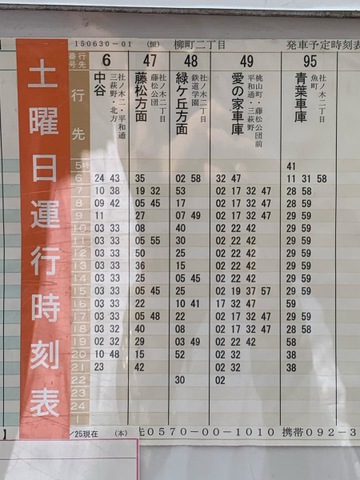 土曜日運行時刻表
150630-01 (恒) 柳町二丁目 発車予定時刻表
行先番号 6 47 48 49 95
行先
中谷
社ノ木二・平和通
三萩野・北方
藤松方面
社ノ木二丁目
藤松公団
緑ヶ丘方面
社ノ木二丁目
鉄道学園
愛の家車庫
桃山町・藤松公団前
平和通・三萩野
青葉車庫
社ノ木二丁目
魚町
5 41
6 24 43 35 02 58 32 47 11 31 58
7 10 38 19 32 53 02 17 32 47 28 58
8 09 42 05 45 17 02 17 32 47 28 59
9 11 27 07 49 02 17 32 47 29 59
10 03 33 08 40 02 22 42 29 59
11 03 33 05 55 30 02 22 42 29 59
12 03 33 50 25 02 22 42 29 59
13 03 33 36 15 02 22 42 29 59
14 03 33 25 05 45 02 22 42 29 59
15 03 33 05 45 25 02 19 37 57 29 59
16 03 33 22 10 41 17 32 47 59
17 03 33 05 48 22 02 17 32 47 29 59
18 03 32 40 08 02 17 32 47 28 59
19 03 30 08 02 22 42 32
20 10 48 15 52 02 32 58
21 23 42 02 32 38
22 30 02
23
24
】 /25現在 (本) 先0570-00-1010 携帯092-3